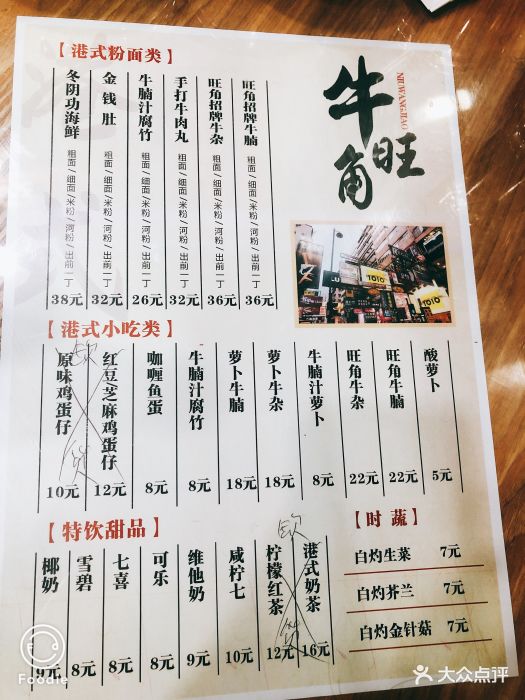 【港式粉面类】
冬阴功海鲜 粗面/细面/米粉/河粉/出前一丁 38元
金钱肚 粗面/细面/米粉/河粉/出前一丁 32元
牛腩汁腐竹 粗面/细面/米粉/河粉/出前一丁 26元
手打牛肉丸 粗面/细面/米粉/河粉/出前一丁 32元
旺角招牌牛杂 粗面/细面/米粉/河粉/出前一丁 36元
旺角招牌牛腩 粗面/细面/米粉/河粉/出前一丁 36元
牛旺角
NIUWANGJIAO
TOTO
TOTO
【港式小吃类】
原味鸡蛋仔 10元
红豆芝麻鸡蛋仔 12元
欠货
咖喱鱼蛋 8元
牛腩汁腐竹 8元
萝卜牛腩 18元
萝卜牛杂 18元
牛腩汁萝卜 8元
旺角牛杂 22元
旺角牛腩 22元
酸萝卜 5元
【特饮甜品】
椰奶 9元
雪碧 8元
七喜 8元
可乐 8元
维他奶 9元
咸柠七 10元
柠檬红茶 12元
港式奶茶 16元
欠货
【时蔬】
白灼生菜 7元
白灼芥兰 7元
白灼金针菇 7元
Foodie
大众点评